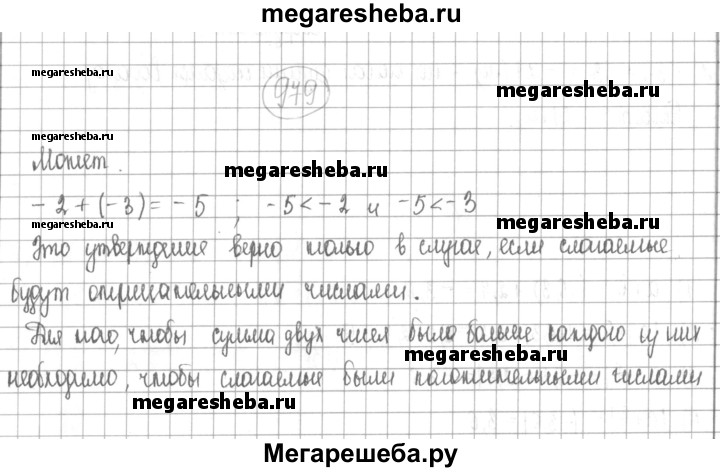 megaresheba.ru
megaresheba.ru
979
megaresheba.ru
megaresheba.ru
Может.
megaresheba.ru
-2+(-3)=-5 ; -5<-2 и -5<-3
megaresheba.ru
megaresheba.ru
Это утверждение верно только в случае, если слагаемые
будут отрицательными числами.
Для того, чтобы сумма двух чисел была больше каждого из них
megaresheba.ru
необходимо, чтобы слагаемые были положительными числами
megaresheba.ru
Мегарешеба.ру